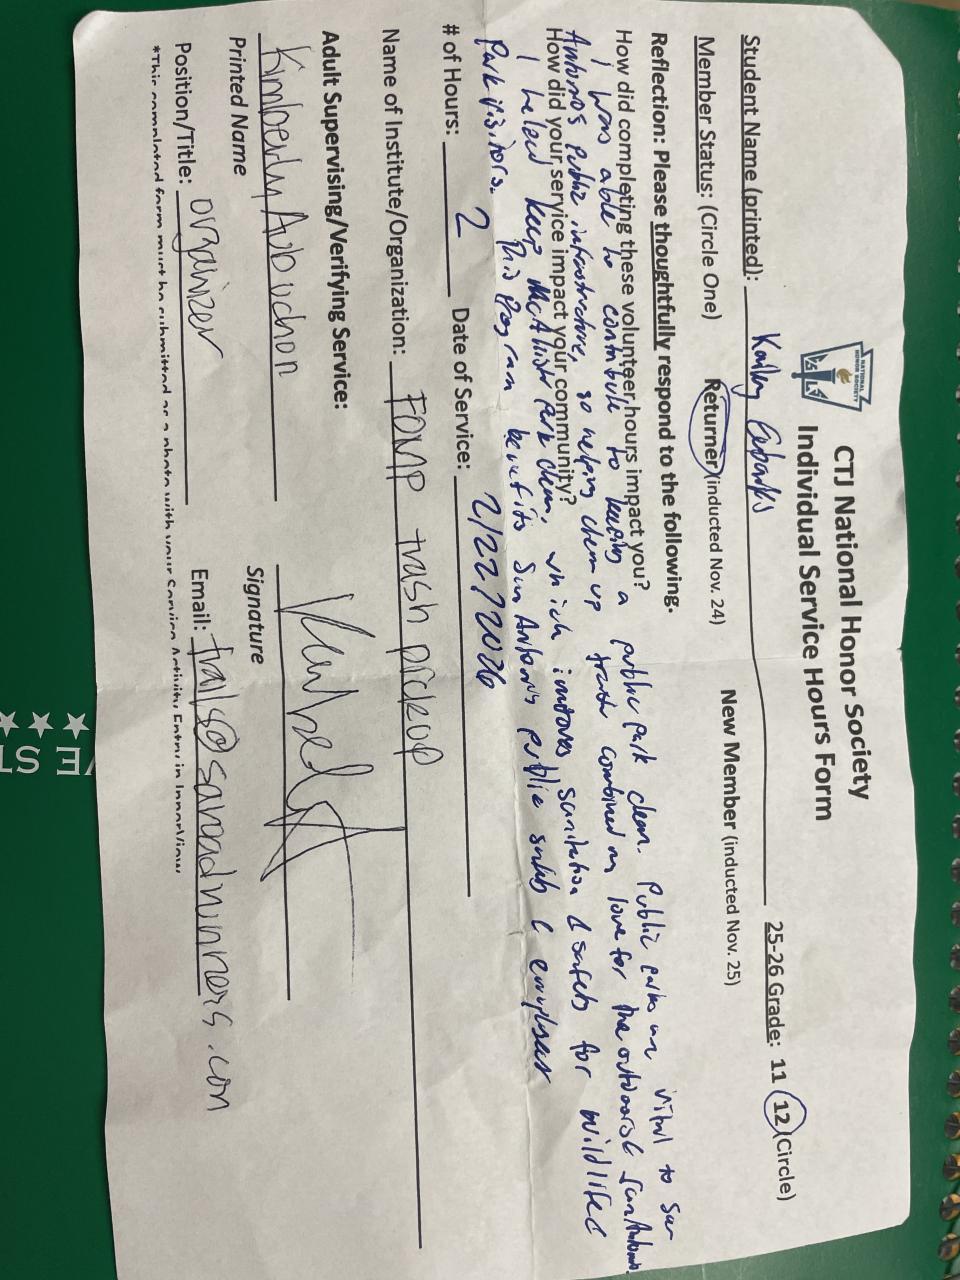 CTJ National Honor Society
Individual Service Hours Form
NATIONAL HONOR SOCIETY
Student Name (printed): Kailey Eubanks 25-26 Grade: 11 12 (Circle)
Member Status: (Circle One) Returner (inducted Nov. 24) New Member (inducted Nov. 25)
Reflection: Please thoughtfully respond to the following.
How did completing these volunteer hours impact you?
I was able to contribute to keeping a public park clean. Public parks are vital to San
Antonio's public infrastructure, so helping clean up trash combined my love for the outdoors & San Antonio.
How did your service impact your community?
I helped keep McAllister Park clean, which improves sanitation & safety for wildlife &
park visitors. This program benefits San Antonio's public
# of Hours: 2 Date of Service: 2/22/2026
Name of Institute/Organization: FOMP trash pickup
Adult Supervising/Verifying Service:
Kimberly Aubuchon
Printed Name Signature
Position/Title: organizer Email: trails@saroadrunners.com
*This completed form must be submitted as a photo with your Service Activity Entry in InnerView
VE ST